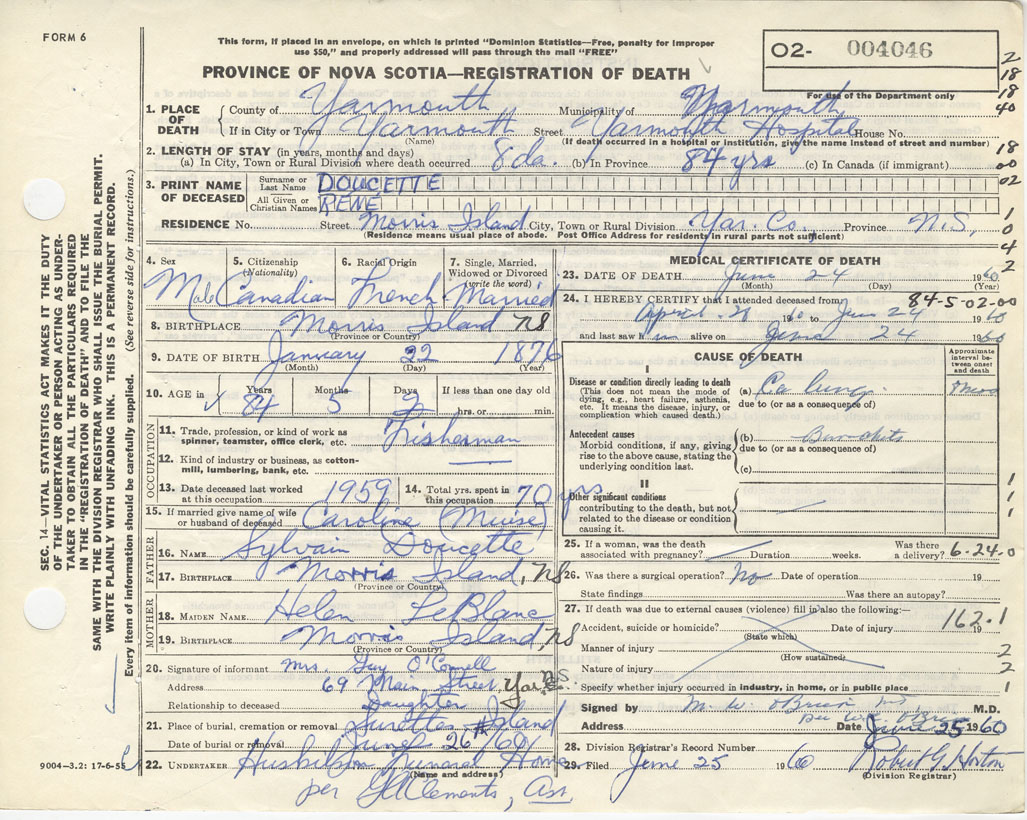 FORM 6
This form, if placed in an envelope, on which is printed "Dominion Statistics—Free, penalty for improper
use $50," and properly addressed will pass through the mail "FREE"
PROVINCE OF NOVA SCOTIA—REGISTRATION OF DEATH
O2- 004046
For use of the Department only
2
18
18
40
18
00
02
1
0
4
2
1. PLACE OF DEATH { County of Yarmouth Municipality of Yarmouth
If in City or Town Yarmouth Street Yarmouth Hospital House No.
(Name) (If death occurred in a hospital or institution, give the name instead of street and number)
2. LENGTH OF STAY (in years, months and days)
(a) In City, Town or Rural Division where death occurred 8 da. (b) In Province 84 yrs (c) In Canada (if immigrant)
3. PRINT NAME OF DECEASED { Surname or Last Name DOUCETTE
All Given or Christian Names RENE
RESIDENCE No. Street Morris Island City, Town or Rural Division Yar. Co., Province N.S,
(Residence means usual place of abode. Post Office Address for residents in rural parts not sufficient)
4. Sex Male
5. Citizenship (Nationality) Canadian
6. Racial Origin French
7. Single, Married, Widowed or Divorced (write the word) Married
8. BIRTHPLACE Morris Island NS
(Province or Country)
9. DATE OF BIRTH January 22 1876
(Month) (Day) (Year)
10. AGE in Years 84 Months 5 Days 2 If less than one day old hrs. or min.
OCCUPATION
11. Trade, profession, or kind of work as spinner, teamster, office clerk, etc. Fisherman
12. Kind of industry or business, as cotton-mill, lumbering, bank, etc.
13. Date deceased last worked at this occupation 1959 14. Total yrs. spent in this occupation 70 yrs
15. If married give name of wife or husband of deceased Caroline (Muise)
FATHER
16. NAME Sylvain Doucette
17. BIRTHPLACE Morris Island, NS
(Province or Country)
MOTHER
18. MAIDEN NAME Helen LeBlanc
19. BIRTHPLACE Morris Island, NS
(Province or Country)
20. Signature of informant Mrs. Guy O'Connell
Address 69 Main Street, Yar. N.S.
Relationship to deceased Daughter
21. Place of burial, cremation or removal Surettes Island
Date of burial or removal June 26th/60
22. UNDERTAKER Huskilson Funeral Home
(Name and address)
per G Clements, Ass
MEDICAL CERTIFICATE OF DEATH
23. DATE OF DEATH June 24 1960
(Month) (Day) (Year)
84-5-02-00
24. I HEREBY CERTIFY that I attended deceased from
April 1960 to June 24 1960
and last saw him alive on June 24 1960
CAUSE OF DEATH
Approximate interval between onset and death
I
Disease or condition directly leading to death
(This does not mean the mode of dying, e.g., heart failure, asthenia, etc. It means the disease, injury, or complication which caused death.)
(a) Ca lung
due to (or as a consequence of)
Antecedent causes
Morbid conditions, if any, giving rise to the above cause, stating the underlying condition last.
(b)
due to (or as a consequence of)
(c)
II
Other significant conditions
contributing to the death, but not related to the disease or condition causing it.
1
1
1
25. If a woman, was the death associated with pregnancy? Duration weeks. Was there a delivery? 6-24-0
26. Was there a surgical operation? No Date of operation 19
State findings Was there an autopsy?
27. If death was due to external causes (violence) fill in also the following:—
Accident, suicide or homicide? Date of injury 19
162.1
(State which)
Manner of injury 2
(How sustained)
Nature of injury 2
Specify whether injury occurred in industry, in home, or in public place 1
Signed by M. W. O'Brien M.D.
per W. O'Brien
Address Date June 25 1960
28. Division Registrar's Record Number
29. Filed June 25 1960 Robert G. Horton
(Division Registrar)
SEC. 14—VITAL STATISTICS ACT MAKES IT THE DUTY
OF THE UNDERTAKER OR PERSON ACTING AS UNDER-
TAKER TO OBTAIN ALL THE PARTICULARS REQUIRED
IN THE "REGISTRATION OF DEATH" AND TO FILE THE
SAME WITH THE DIVISION REGISTRAR WHO SHALL ISSUE THE BURIAL PERMIT.
WRITE PLAINLY WITH UNFADING INK. THIS IS A PERMANENT RECORD.
Every item of information should be carefully supplied. (See reverse side for instructions.)
9004-3.2: 17-6-55